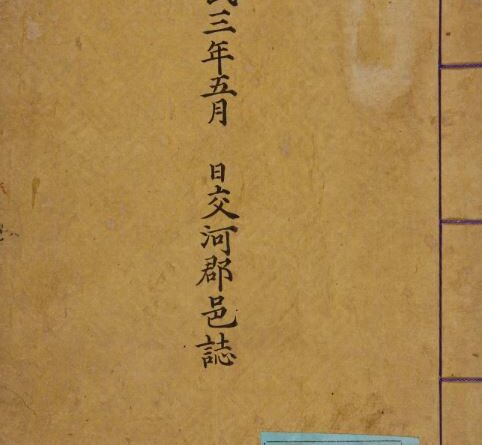 三年五月 日交河郡邑誌